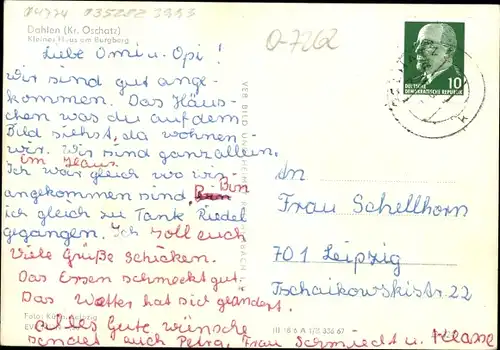 04774 035282 3993
Dahlen (Kr. Oschatz)
Kleines Haus am Burgberg
O-7262
10
DEUTSCHE
DEMOKRATISCHE REPUBLIK
Liebe Omi u. Opi!
Wir sind gut ange-
kommen. Das Häus-
chen was du auf dem
Bild siehst, da wohnen
wir. Wir sind ganz allein,
im Haus
Ich war gleich wo wir
angekommen sind, Bin
ich gleich zu Tante Riedel
gegangen. Ich soll euch
viele Grüße schicken.
Das Essen schmeckt gut.
Das Wetter hat sich geändert.
alles Gute wünsche
sendet auch Petra, Frau Schmiedt u. Klasse
VEB BILD UND HEIMAT REICHENBACH I. V.
An
Frau Schellhorn
701 Leipzig
Tschaikowskistr. 22
Foto: Leipzig
III 18/6 A 1/B 336 67